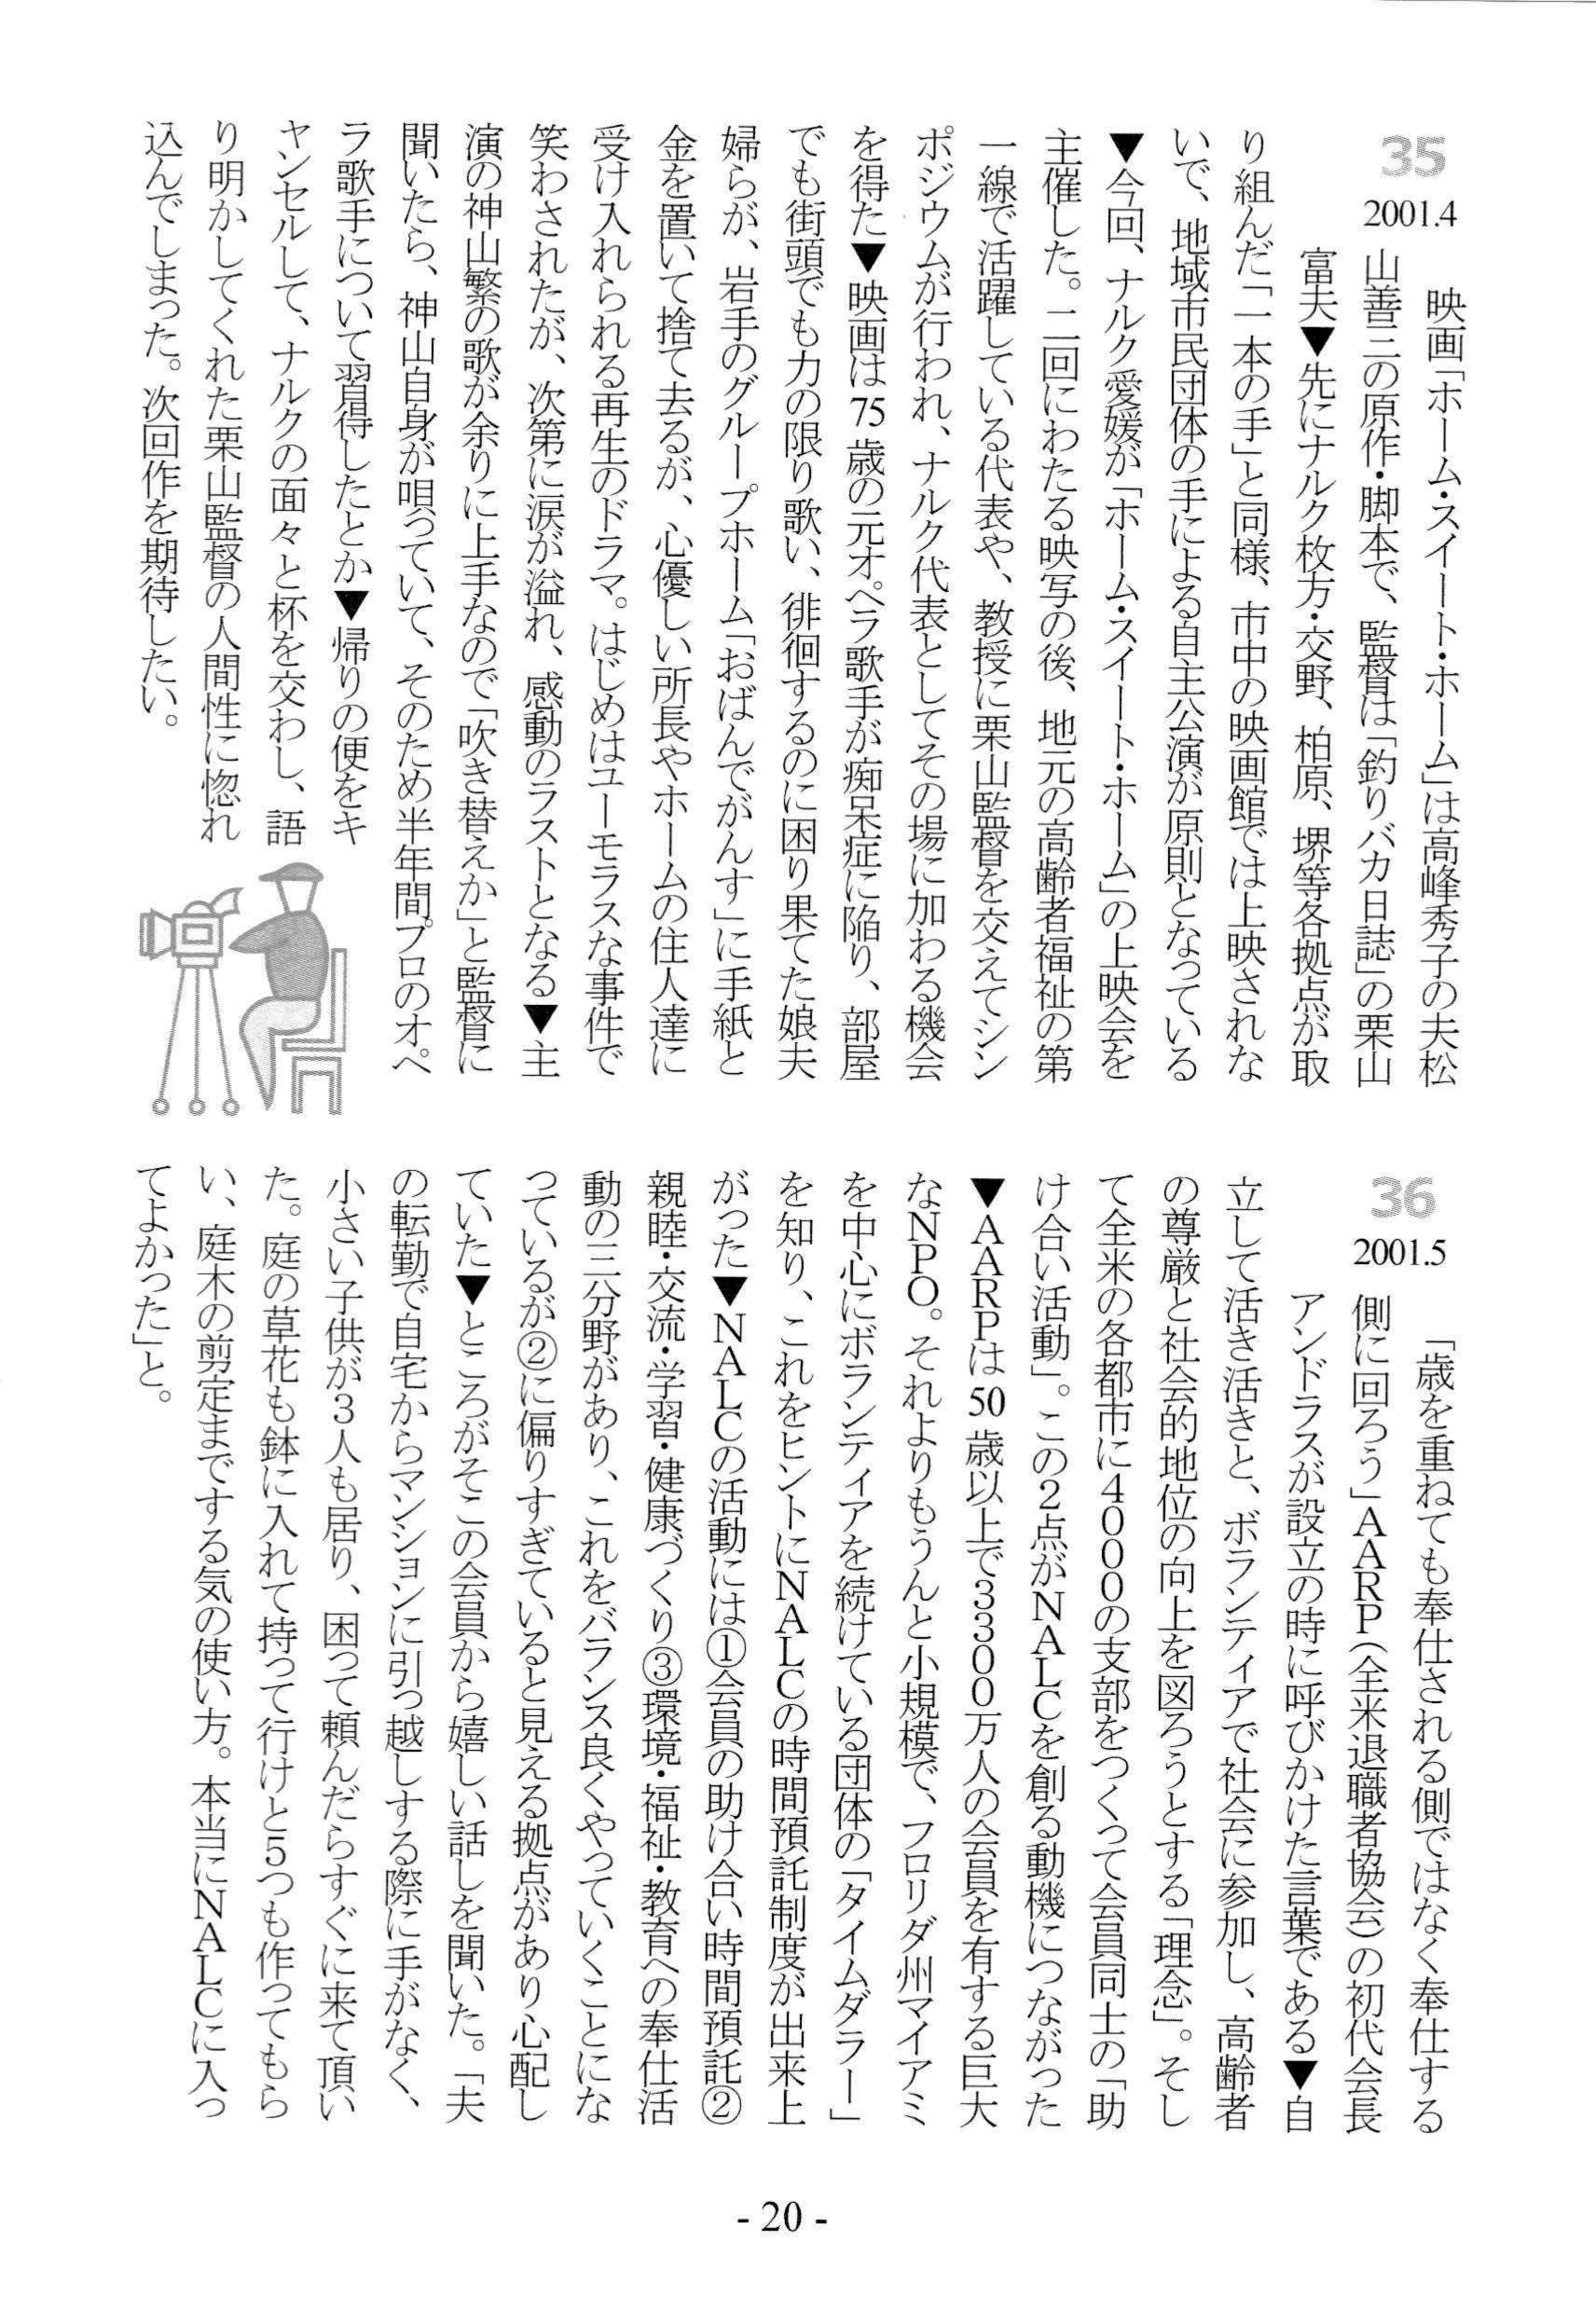 35
2001.4
映画「ホーム・スイート・ホーム」は高峰秀子の夫松
山善三の原作・脚本で、監督は「釣りバカ日誌」の栗山
富夫▼先にナルク枚方・交野、柏原、堺等各拠点が取
り組んだ「一本の手」と同様、市中の映画館では上映されな
いで、地域市民団体の手による自主公演が原則となっている
▼今回、ナルク愛媛が「ホーム・スイート・ホーム」の上映会を
主催した。二回にわたる映写の後、地元の高齢者福祉の第
一線で活躍している代表や、教授に栗山監督を交えてシン
ポジウムが行われ、ナルク代表としてその場に加わる機会
を得た▼映画は75歳の元オペラ歌手が痴呆症に陥り、部屋
でも街頭でも力の限り歌い、徘徊するのに困り果てた娘夫
婦らが、岩手のグループホーム「おばんでがんす」に手紙と
金を置いて捨て去るが、心優しい所長やホームの住人達に
受け入れられる再生のドラマ。はじめはユーモラスな事件で
笑わされたが、次第に涙が溢れ、感動のラストとなる▼主
演の神山繁の歌が余りに上手なので「吹き替えか」と監督に
聞いたら、神山自身が唄っていて、そのため半年間プロのオペ
ラ歌手について習得したとか▼帰りの便をキ
ャンセルして、ナルクの面々と杯を交わし、語
り明かしてくれた栗山監督の人間性に惚れ
込んでしまった。次回作を期待したい。
36
2001.5
「歳を重ねても奉仕される側ではなく奉仕する
側に回ろう」AARP(全米退職者協会)の初代会長
アンドラスが設立の時に呼びかけた言葉である▼自
立して活き活きと、ボランティアで社会に参加し、高齢者
の尊厳と社会的地位の向上を図ろうとする「理念」。そし
て全米の各都市に4000の支部をつくって会員同士の「助
け合い活動」。この2点がNALCを創る動機につながった
▼AARPは50歳以上で3300万人の会員を有する巨大
なNPO。それよりもうんと小規模で、フロリダ州マイアミ
を中心にボランティアを続けている団体の「タイムダラー」
を知り、これをヒントにNALCの時間預託制度が出来上
がった▼NALCの活動には①会員の助け合い時間預託②
親睦・交流・学習・健康づくり③環境・福祉・教育への奉仕活
動の三分野があり、これをバランス良くやっていくことにな
っているが②に偏りすぎていると見える拠点があり心配し
ていた▼ところがそこの会員から嬉しい話しを聞いた。「夫
の転勤で自宅からマンションに引っ越しする際に手がなく、
小さい子供が3人も居り、困って頼んだらすぐに来て頂い
た。庭の草花も鉢に入れて持って行けと5つも作ってもら
い、庭木の剪定までする気の使い方。本当にNALCに入っ
てよかった」と。
- 20 -